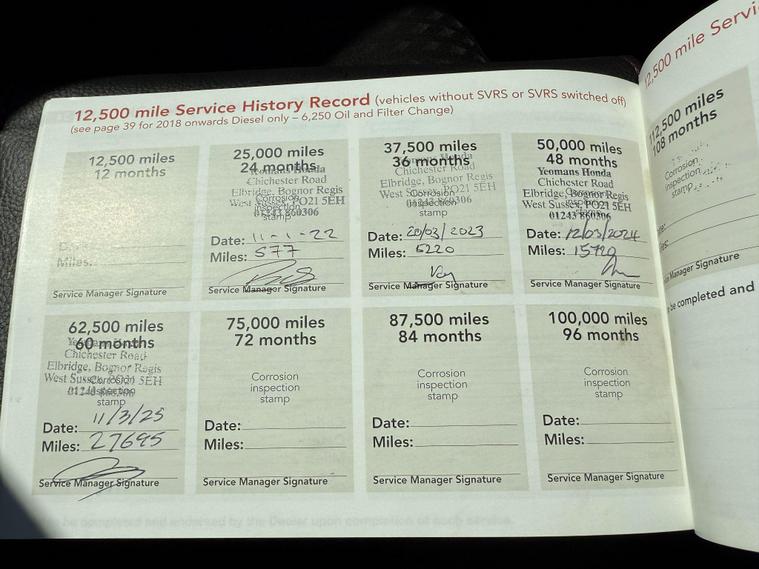 12,500 mile Service History Record (vehicles without SVRS or SVRS switched off)
(see page 39 for 2018 onwards Diesel only – 6,250 Oil and Filter Change)
12,500 miles
12 months
Miles:
Service Manager Signature
25,000 miles
24 months
Yeomans Honda
Chichester Road
Elbridge, Bognor Regis
West Sussex, PO21 5EH
01243 860306
Corrosion
inspection
stamp
Date: 11-1-22
Miles: 577
Service Manager Signature
37,500 miles
36 months
Yeomans Honda
Chichester Road
Elbridge, Bognor Regis
West Sussex, PO21 5EH
01243 860306
Corrosion
inspection
stamp
Date: 20/03/2023
Miles: 6220
Service Manager Signature
50,000 miles
48 months
Yeomans Honda
Chichester Road
Elbridge, Bognor Regis
West Sussex, PO21 5EH
01243 860306
Corrosion
inspection
stamp
Date: 12/03/2024
Miles: 15720
Service Manager Signature
62,500 miles
60 months
Yeomans Honda
Chichester Road
Elbridge, Bognor Regis
West Sussex, PO21 5EH
01243 860306
Corrosion
inspection
stamp
Date: 11/3/25
Miles: 27695
Service Manager Signature
75,000 miles
72 months
Corrosion
inspection
stamp
Date:
Miles:
Service Manager Signature
87,500 miles
84 months
Corrosion
inspection
stamp
Date:
Miles:
Service Manager Signature
100,000 miles
96 months
Corrosion
inspection
stamp
Date:
Miles:
Service Manager Signature
12,500 mile
112,500 miles
108 months
Corrosion
inspection
stamp
Manager Signature
be completed and